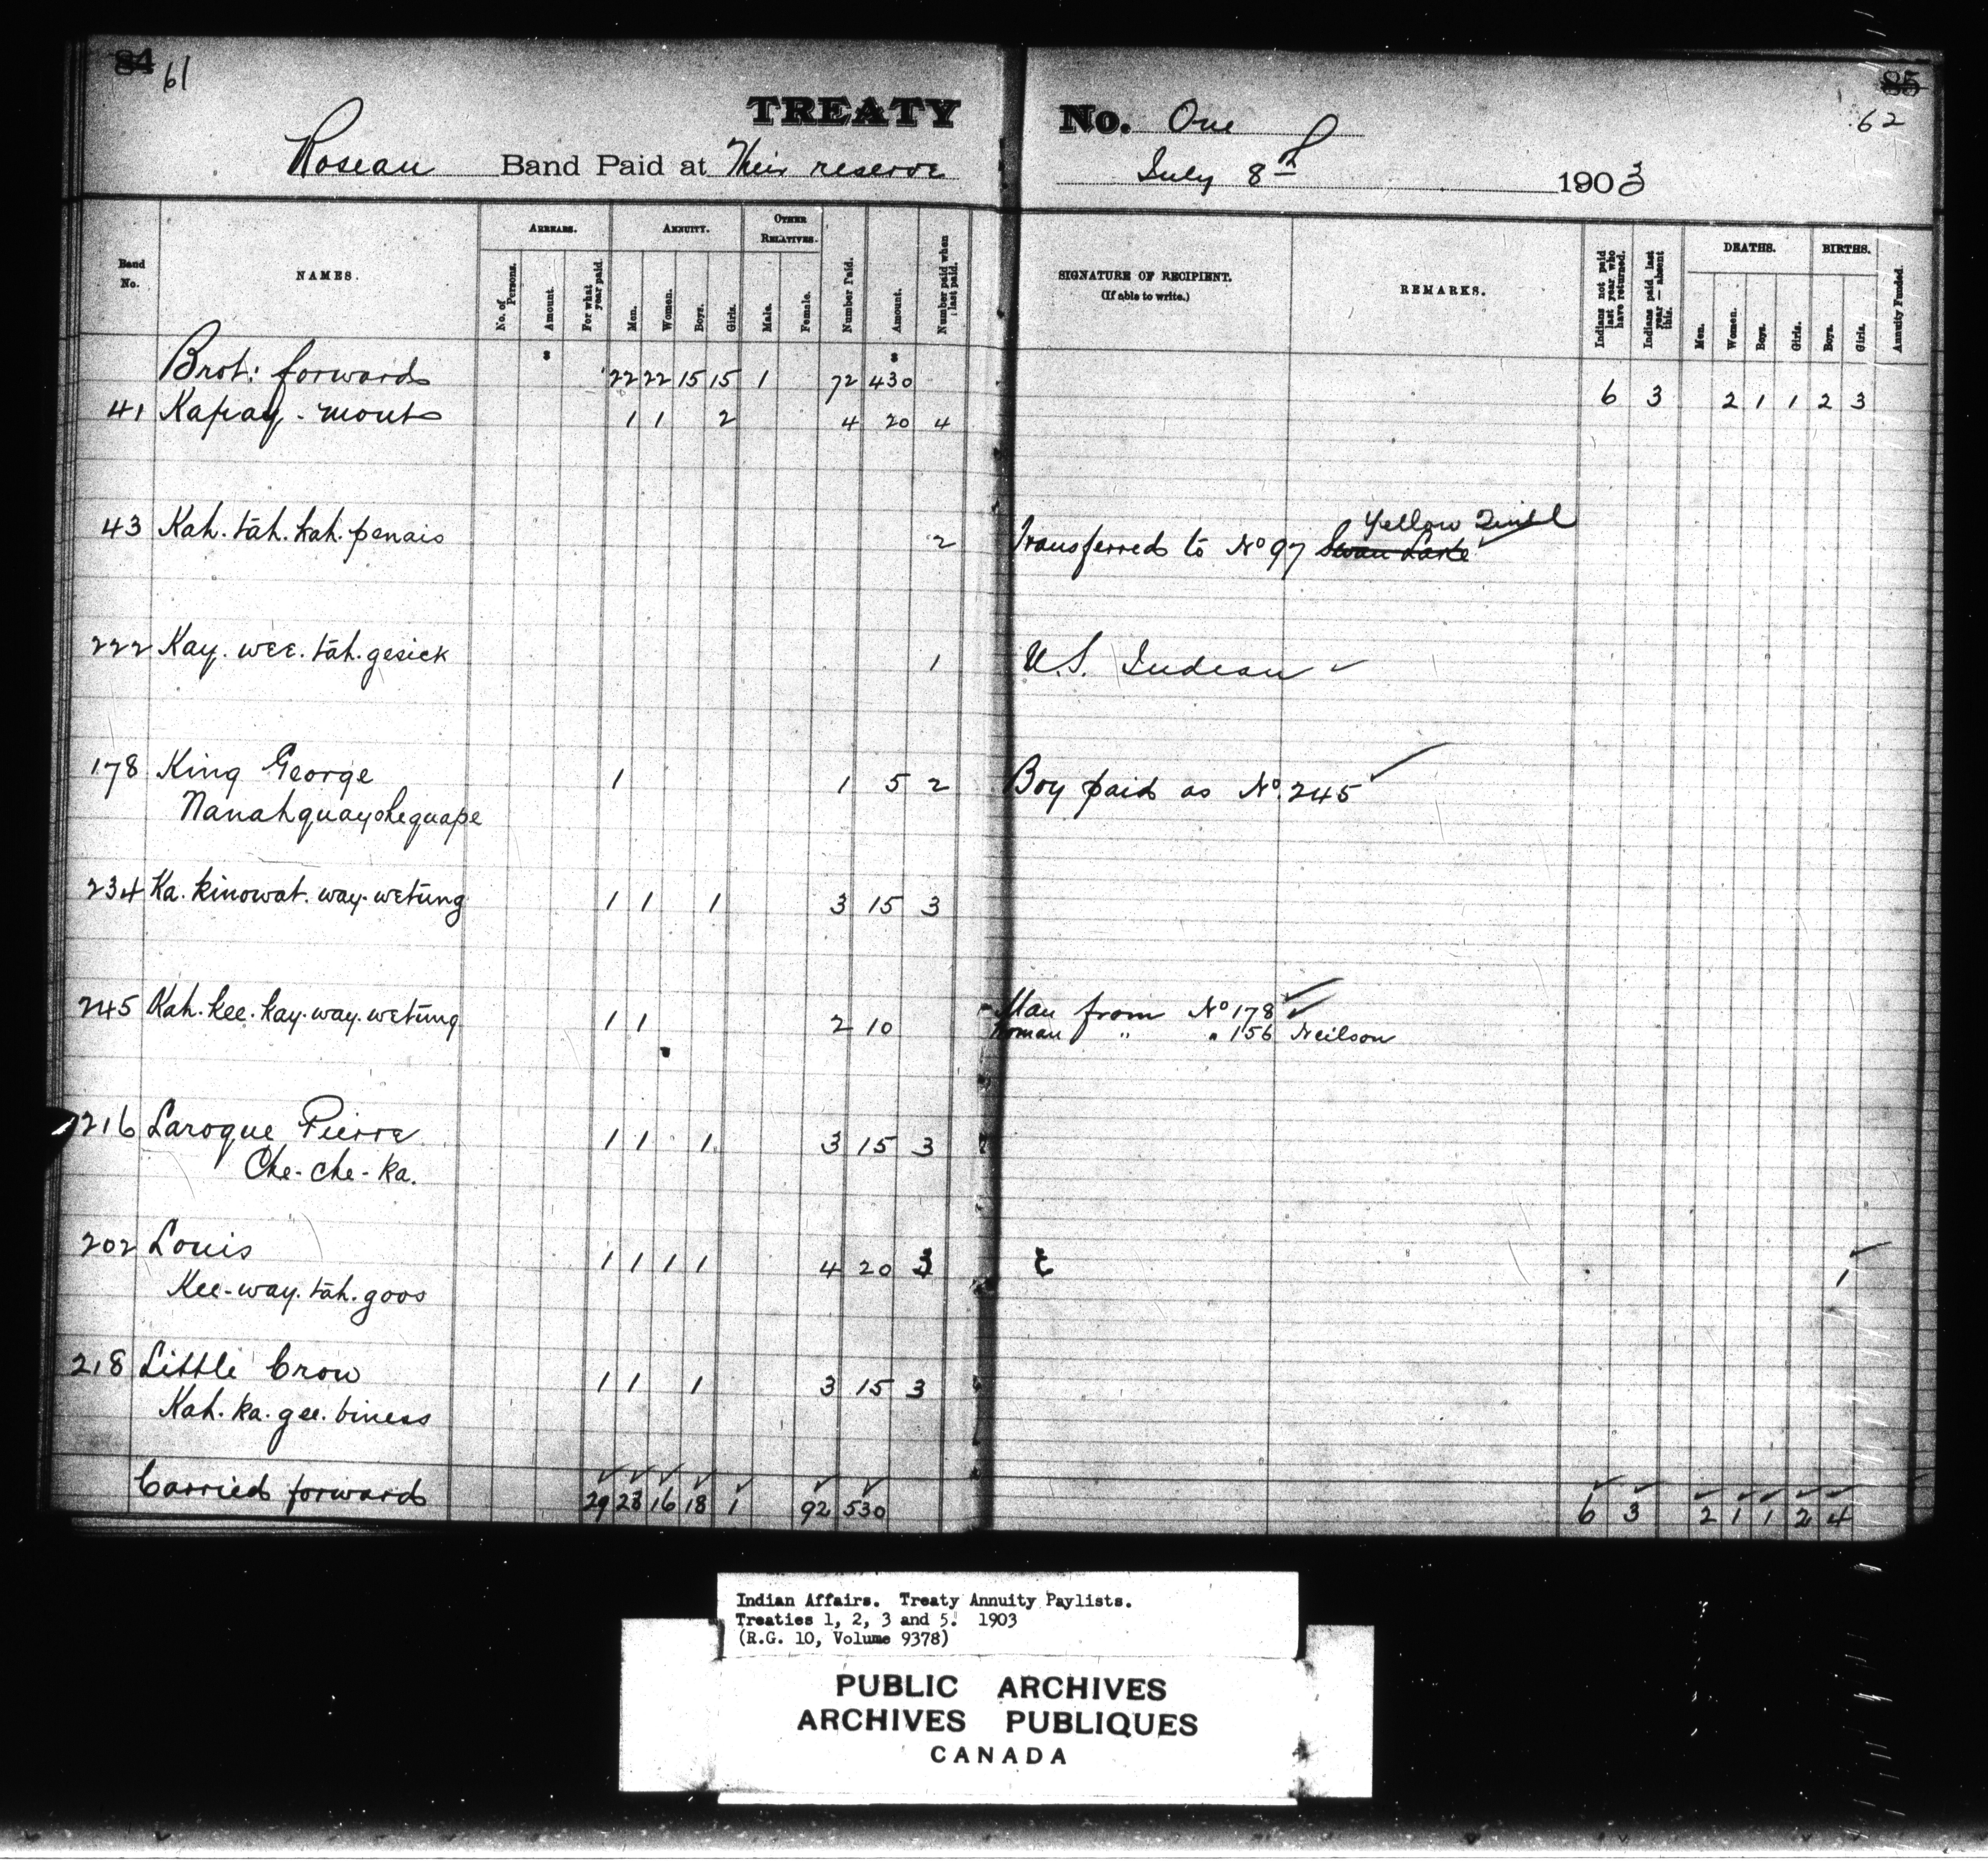 84 61
TREATY No. One
85
62
Roseau Band Paid at Their reserve
July 8th 1903
Band No.
NAMES.
ARREARS.
No. of Persons.
Amount.
For what year paid.
ANNUITY.
Men.
Women.
Boys.
Girls.
OTHER RELATIVES.
Male.
Female.
Number Paid.
Amount.
Number paid when last paid.
SIGNATURE OF RECIPIENT.
(If able to write.)
REMARKS.
Indians not paid last year who have returned.
Indians paid last year — absent this.
DEATHS.
Men.
Women.
Boys.
Girls.
BIRTHS.
Boys.
Girls.
Annuity Funded.
Brot: forward 22 22 15 15 1 72 430 6 3 2 1 1 2 3
41 Kapay-mout 1 1 2 4 20 4
43 Kah. tah. kah. penais 2 Transferred to No 97 Swan Lake Yellow Quill
222 Kay. wee. tah. gesick 1 U.S. Indian
178 King George 1 1 5 2 Boy paid as No. 245
Nanahquayohequape
234 Ka. kinowat. way. wetung 1 1 1 3 15 3
245 Kah. kee. kay. way. wetung 1 1 2 10 Man from No 178
Woman " " 156 Neilson
216 Laroque Pierre 1 1 1 3 15 3
Che-che-ka.
202 Louis 1 1 1 1 4 20 3 1
Kee-way. tah. goos
218 Little Crow 1 1 1 3 15 3
Kah. ka. gee. biness
Carried forward 29 28 16 18 1 92 530 6 3 2 1 1 2 4
Indian Affairs. Treaty Annuity Paylists.
Treaties 1, 2, 3 and 5. 1903
(R.G. 10, Volume 9378)
PUBLIC ARCHIVES
ARCHIVES PUBLIQUES
CANADA